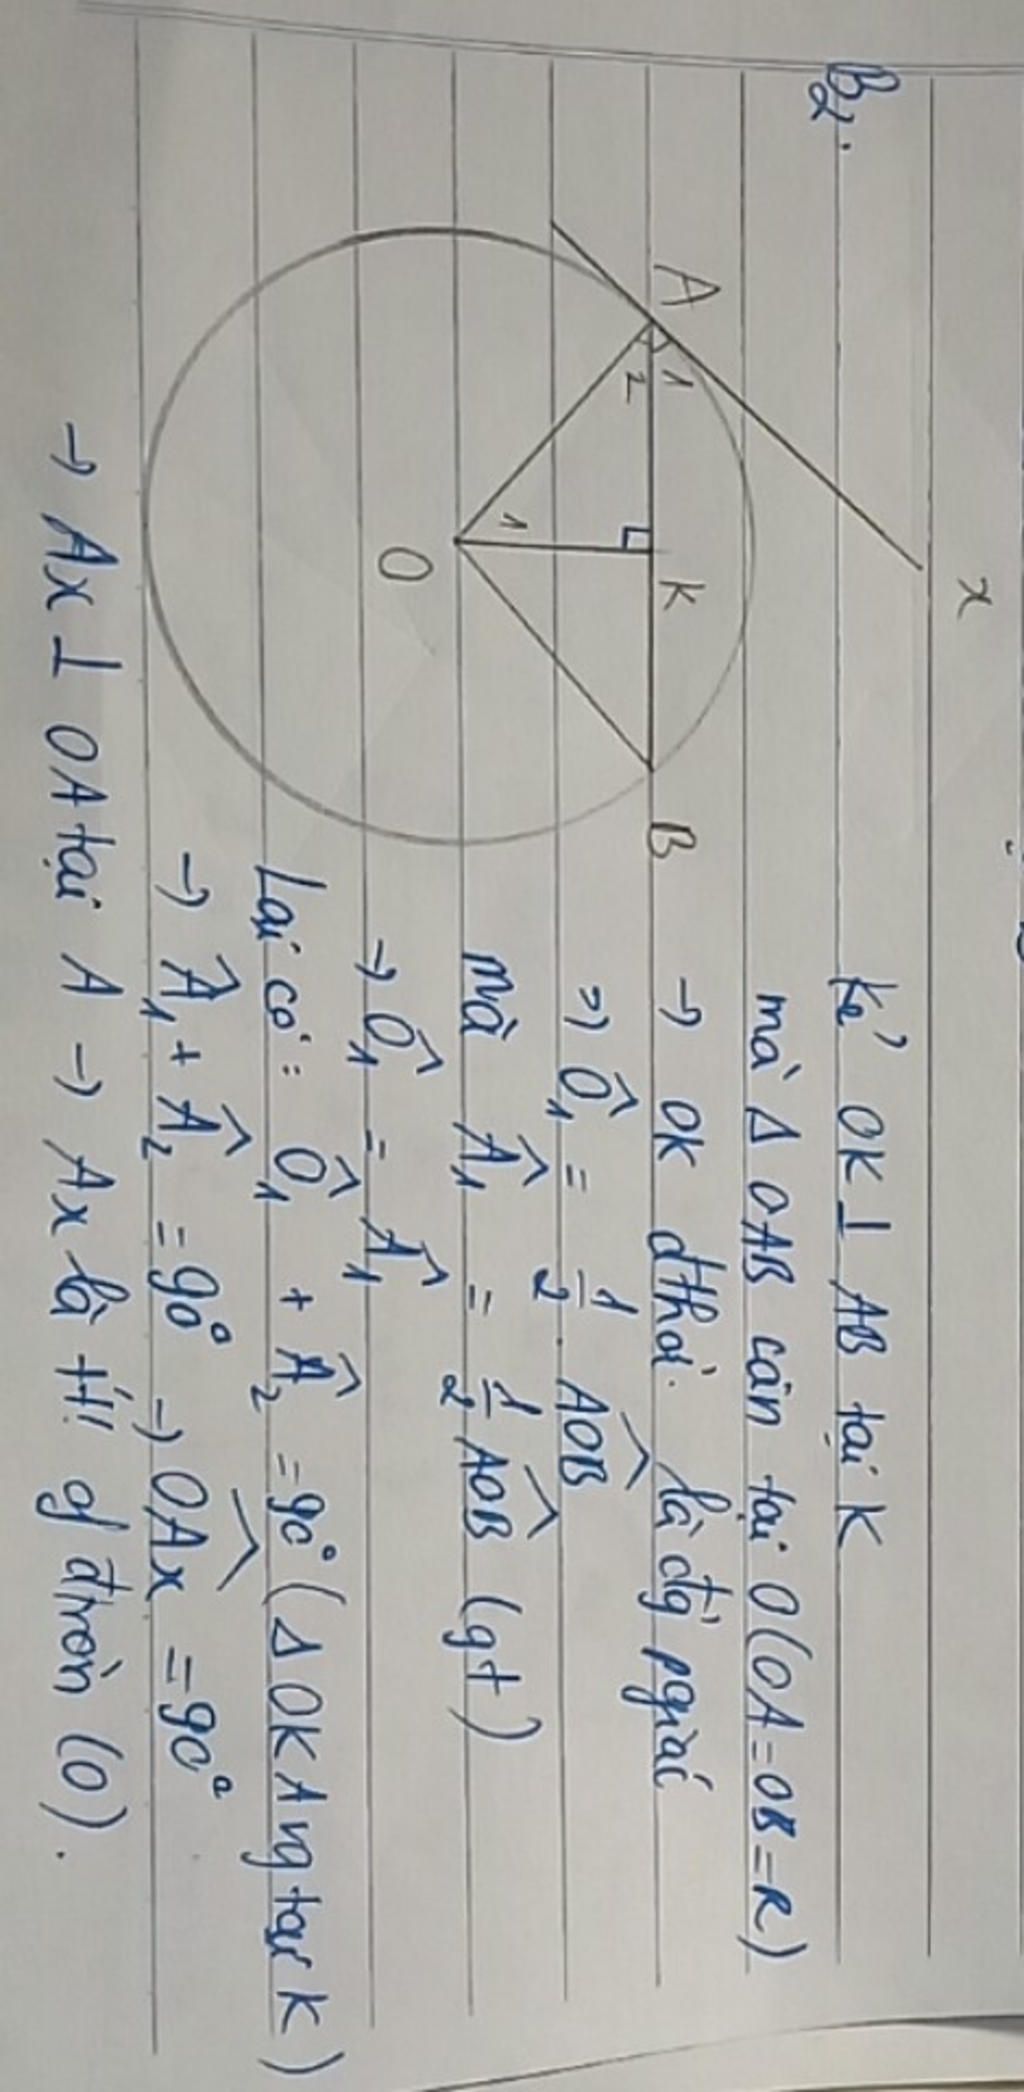 B2.
x
A
1
2
K
B
1
O
kẻ OK ⊥ AB tại K
mà Δ OAB cân tại O (OA = OB = R)
→ OK đthời là đg pgiác
⇒ Ô1 = 1/2 . AOB
mà Â1 = 1/2 AOB (gt)
→ Ô1 = Â1
Lại có: Ô1 + Â2 = 90° (Δ OKA vg tại K)
→ Â1 + Â2 = 90° → OAx = 90°
→ Ax ⊥ OA tại A → Ax là t² of đtròn (O).